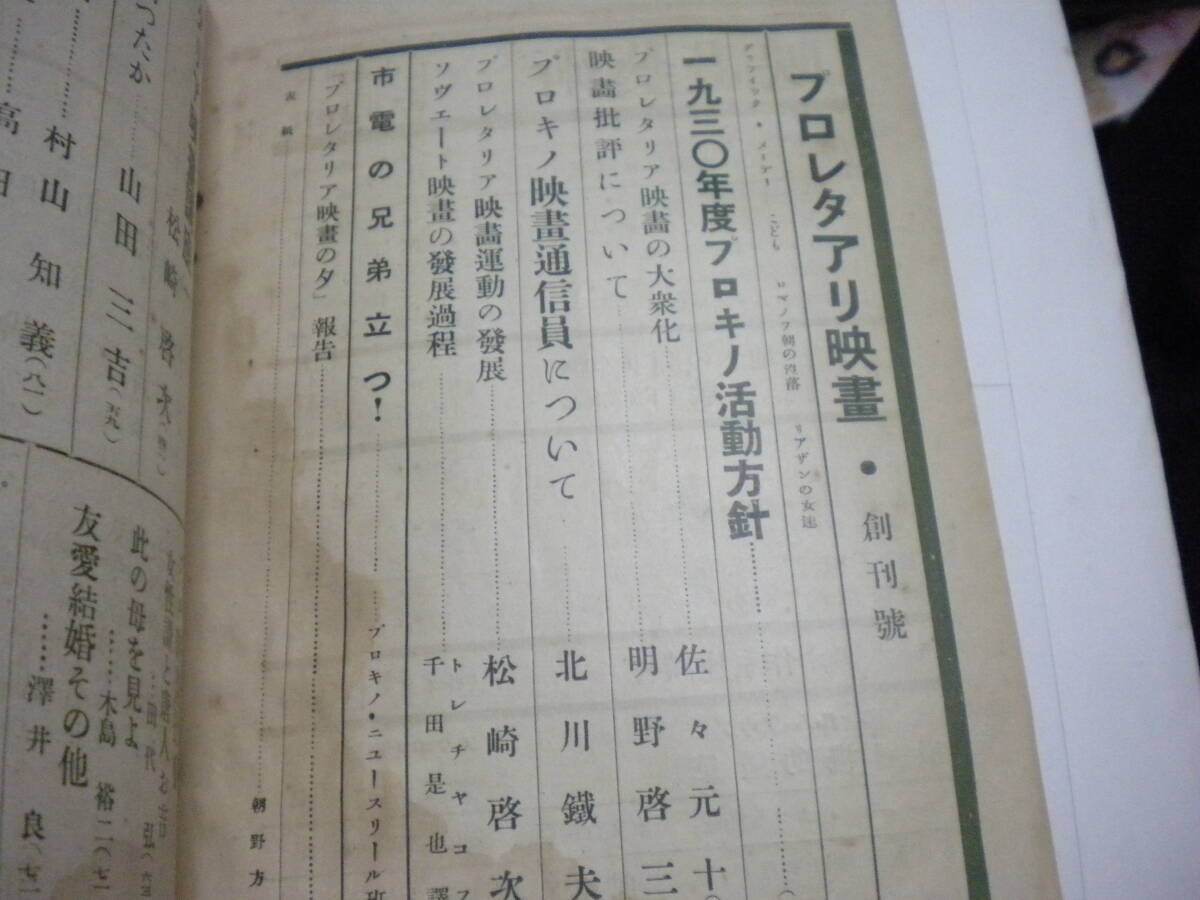 プロレタアリ映畫・創刊號
グラフイツク・メーデー こども ロマノフ朝の沒落 リアザンの女達
一九三〇年度プロキノ活動方針
プロレタリア映畫の大衆化 佐々元十
映畫批評について 明野啓三
プロキノ映畫通信員について 北川鐵夫
プロレタリア映畫運動の發展 松崎啓次
ソヴェート映畫の發展過程 トレチヤコフ 千田是也譯
市電の兄弟立つ! プロキノ・ニユースリール班
「プロレタリア映畫の夕」報告
表紙 朝野方
松崎啓次
つたか 山田三吉(五九)
村山知義(八一)
高田
女性
田代
此の母を見よ 木島裕二(七一
友愛結婚その他 澤井良(七二